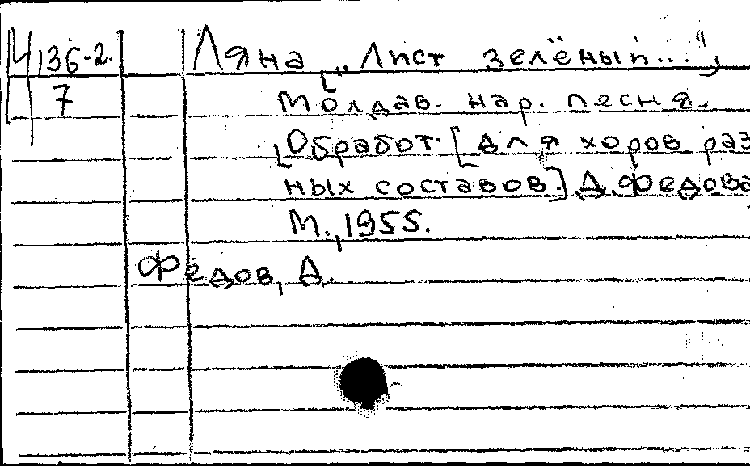 Ч 136-2. Ляна „Лист зелёный..."
7 Молдав. нар. песня.
Обработ. [для хоров раз
ных составов.] Д. Федова
М., 1955.
Федов, Д.